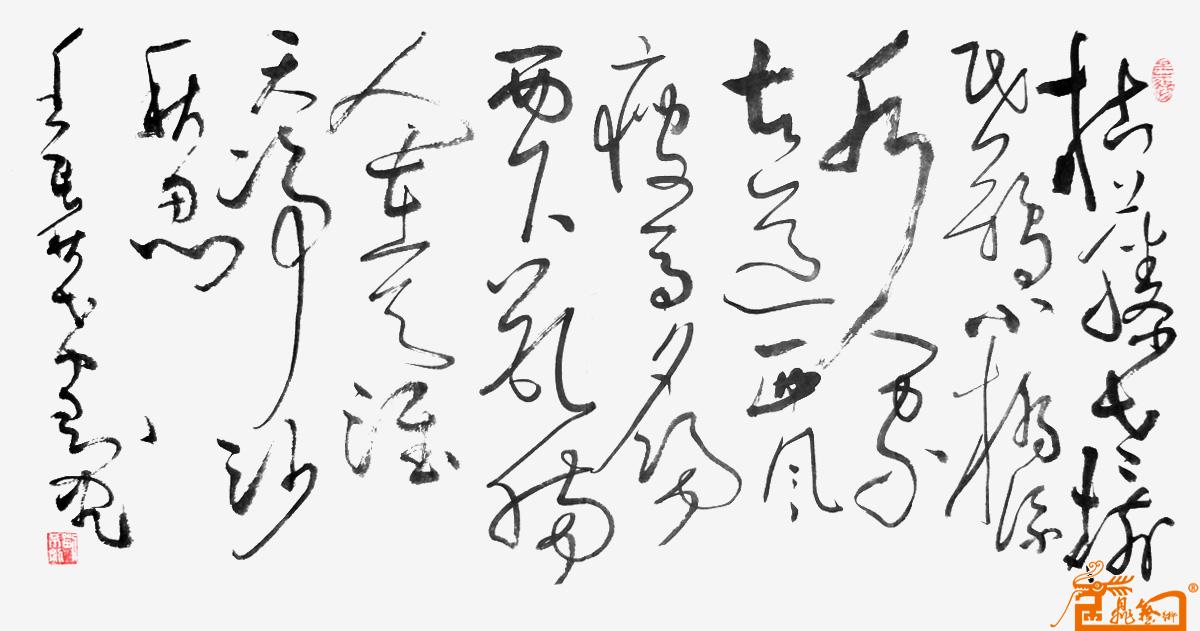 枯藤老树
昏鸦小桥流
水人家
古道西风
瘦马夕阳
西下断肠
人在天涯
天净沙
秋思
壬辰秋